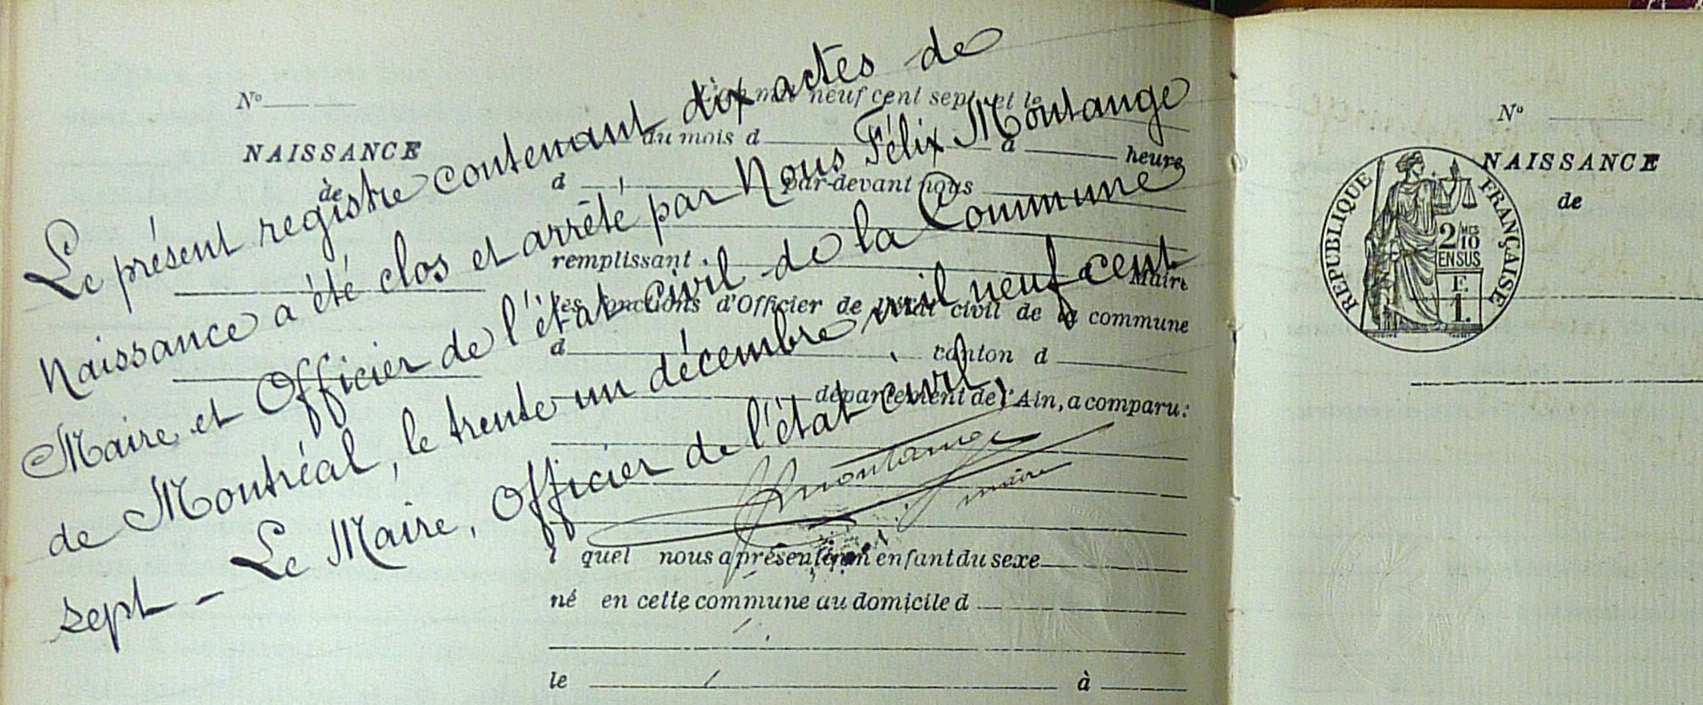 Le présent registre contenant dix actes de
Naissance a été clos et arrêté par Nous Félix Montange
Maire et Officier de l'état civil de la Commune
de Montréal, le trente un décembre mil neuf cent
sept - Le Maire, Officier de l'état civil,
Montange
maire
N°
NAISSANCE
de
L'an mil neuf cent sept et le
du mois d à heure
d par-devant nous
remplissant
Maire
les fonctions d'Officier de l'état civil de la commune
d canton d
département de l'Ain, a comparu:
l quel nous a présenté un enfant du sexe
né en cette commune au domicile d
le à
N°
NAISSANCE
de
RÉPUBLIQUE FRANÇAISE
2/MES
10
EN SUS
F.
1.